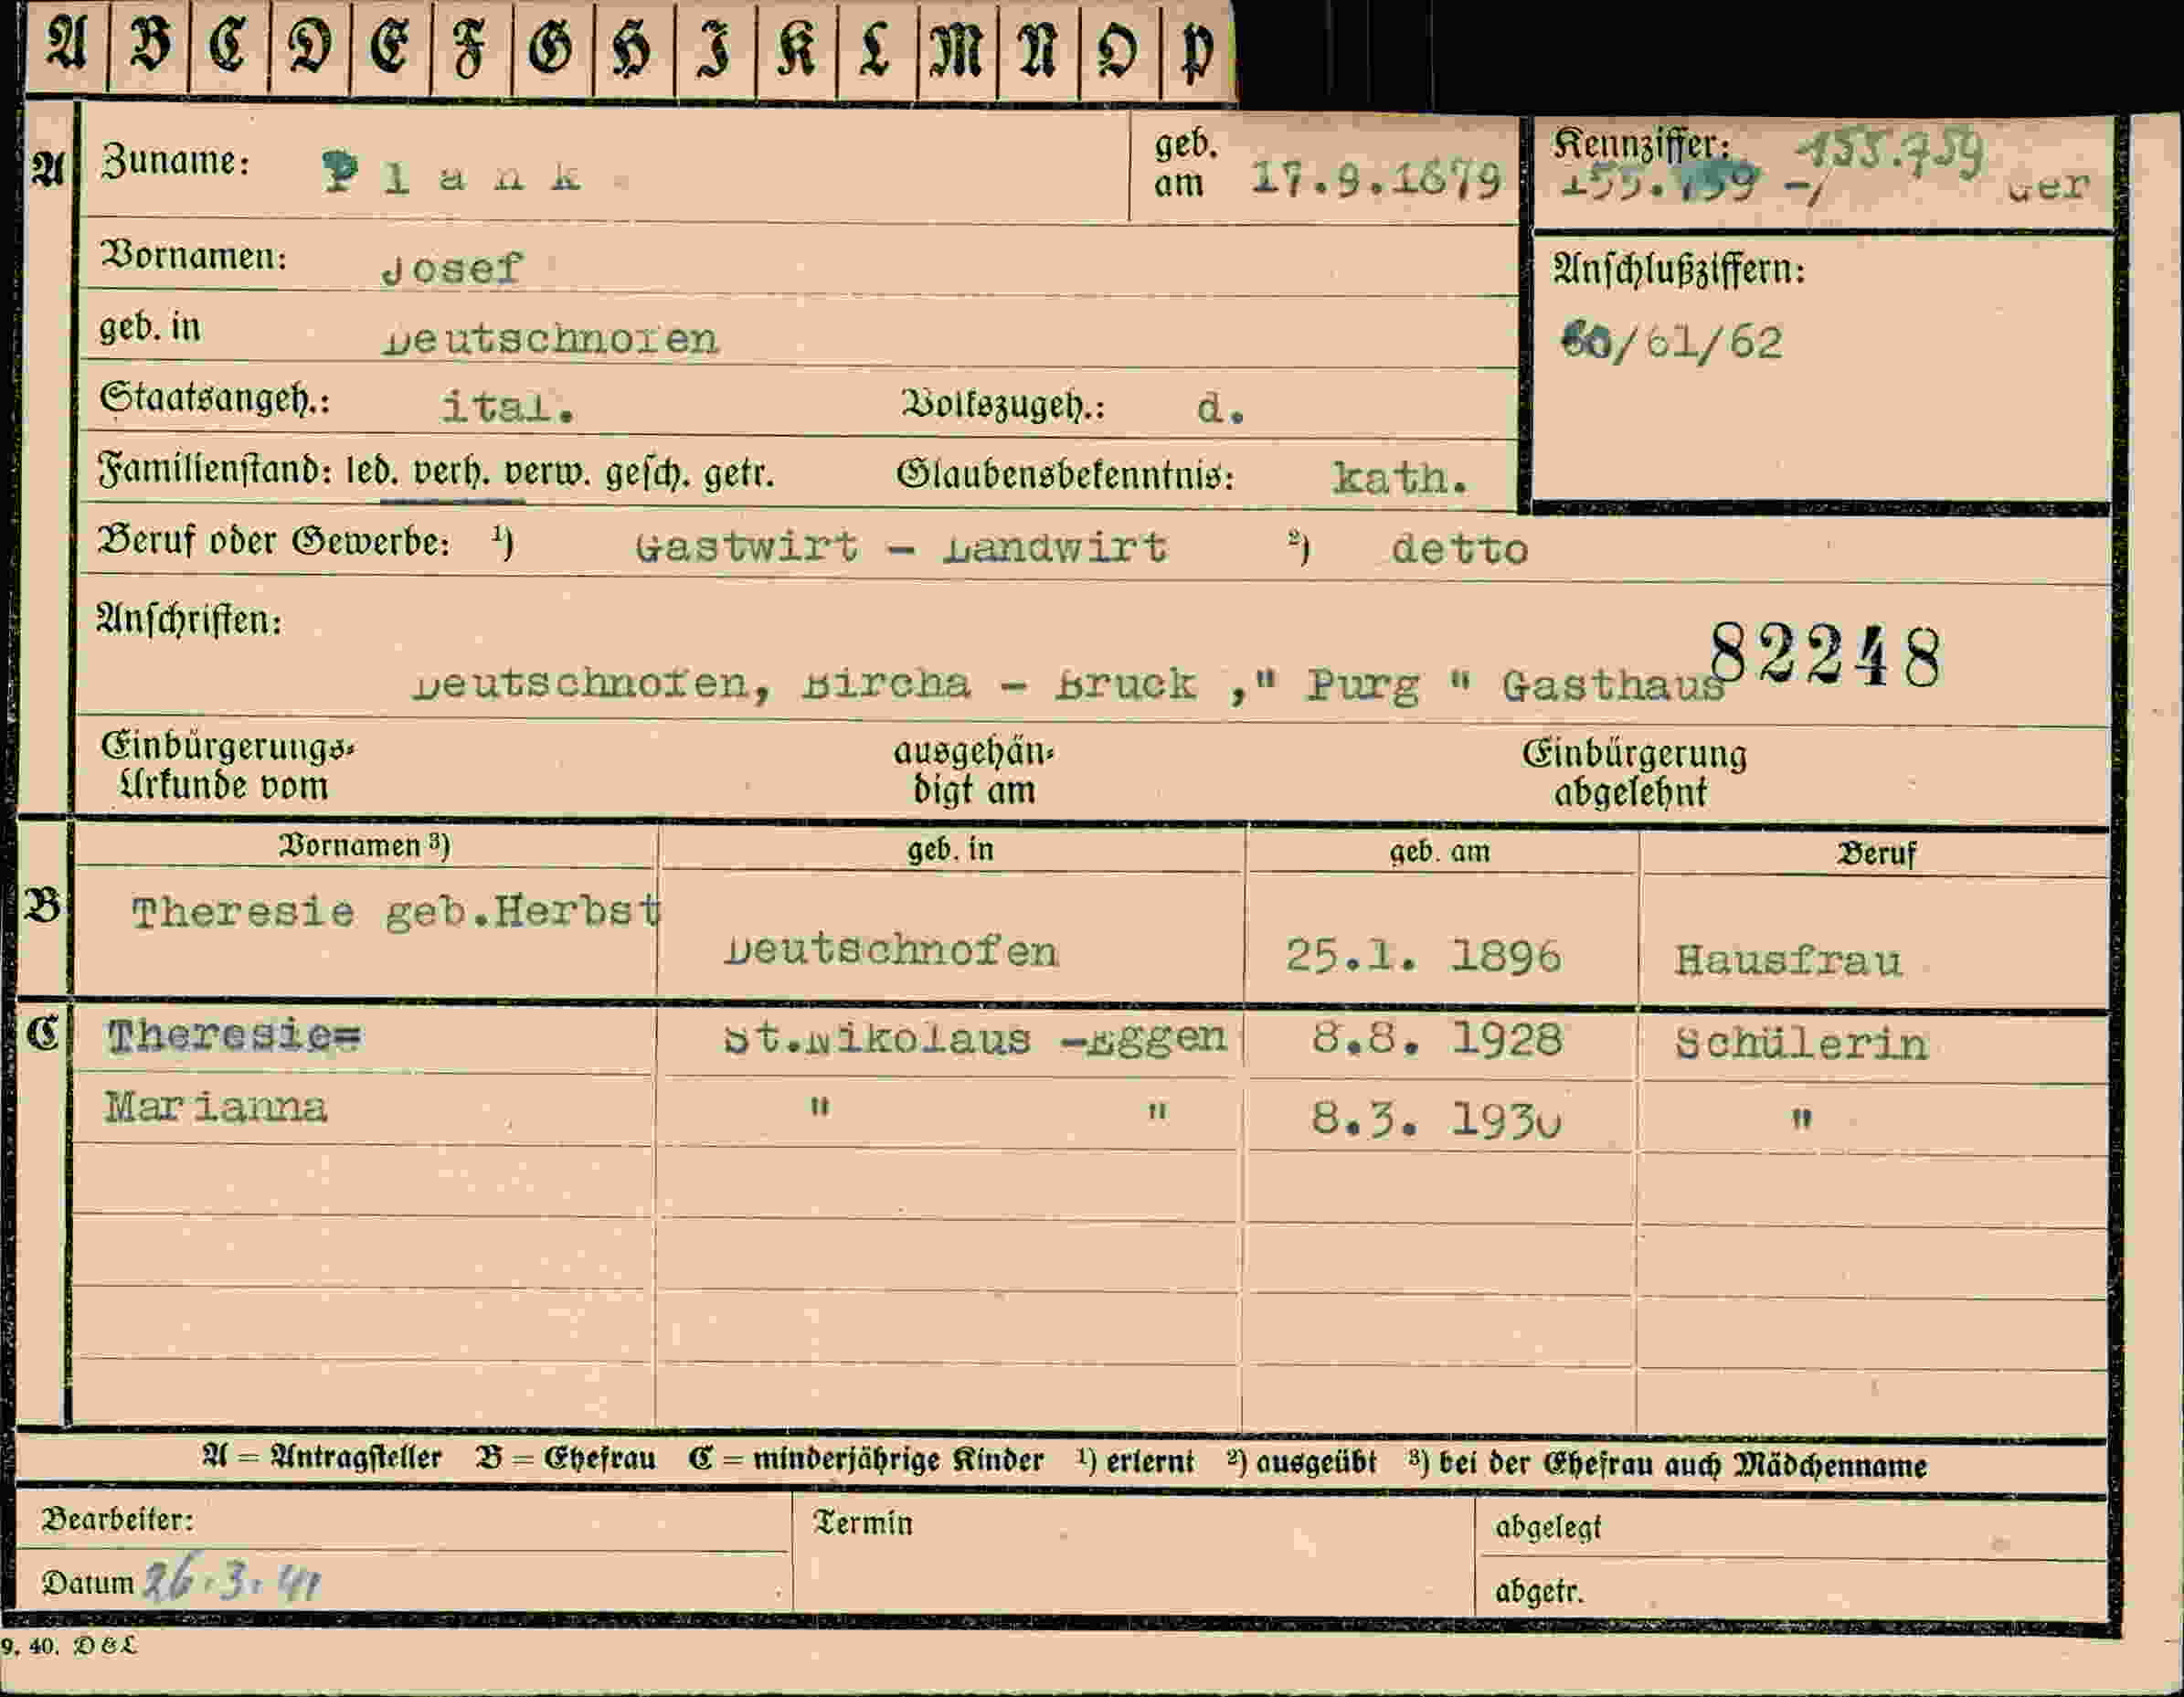 A B C D E F G H I K L M N O P
A Zuname: Plank geb. am 17.9.1879 Kennziffer: 155.759
155.759 -/ Ger
Vornamen: Josef Anschlußziffern:
geb. in Deutschnofen 60/61/62
Staatsangeh.: ital. Volkszugeh.: d.
Familienstand: led. verh. verw. gesch. getr. Glaubensbekenntnis: kath.
Beruf oder Gewerbe: ¹) Gastwirt - Landwirt ²) detto
Anschriften: 82248
Deutschnofen, Bircha - Bruck ," Purg " Gasthaus
Einbürgerungs- ausgehän- Einbürgerung
Urkunde vom digt am abgelehnt
Vornamen ³) geb. in geb. am Beruf
B Theresie geb.Herbst
Deutschnofen 25.1. 1896 Hausfrau
C Theresie= St.Nikolaus -Eggen 8.8. 1928 Schülerin
Marianna " " 8.3. 1930 "
A = Antragsteller B = Ehefrau C = minderjährige Kinder ¹) erlernt ²) ausgeübt ³) bei der Ehefrau auch Mädchenname
Bearbeiter: Termin abgelegt
Datum 26.3.41 abgetr.
9. 40. D&L